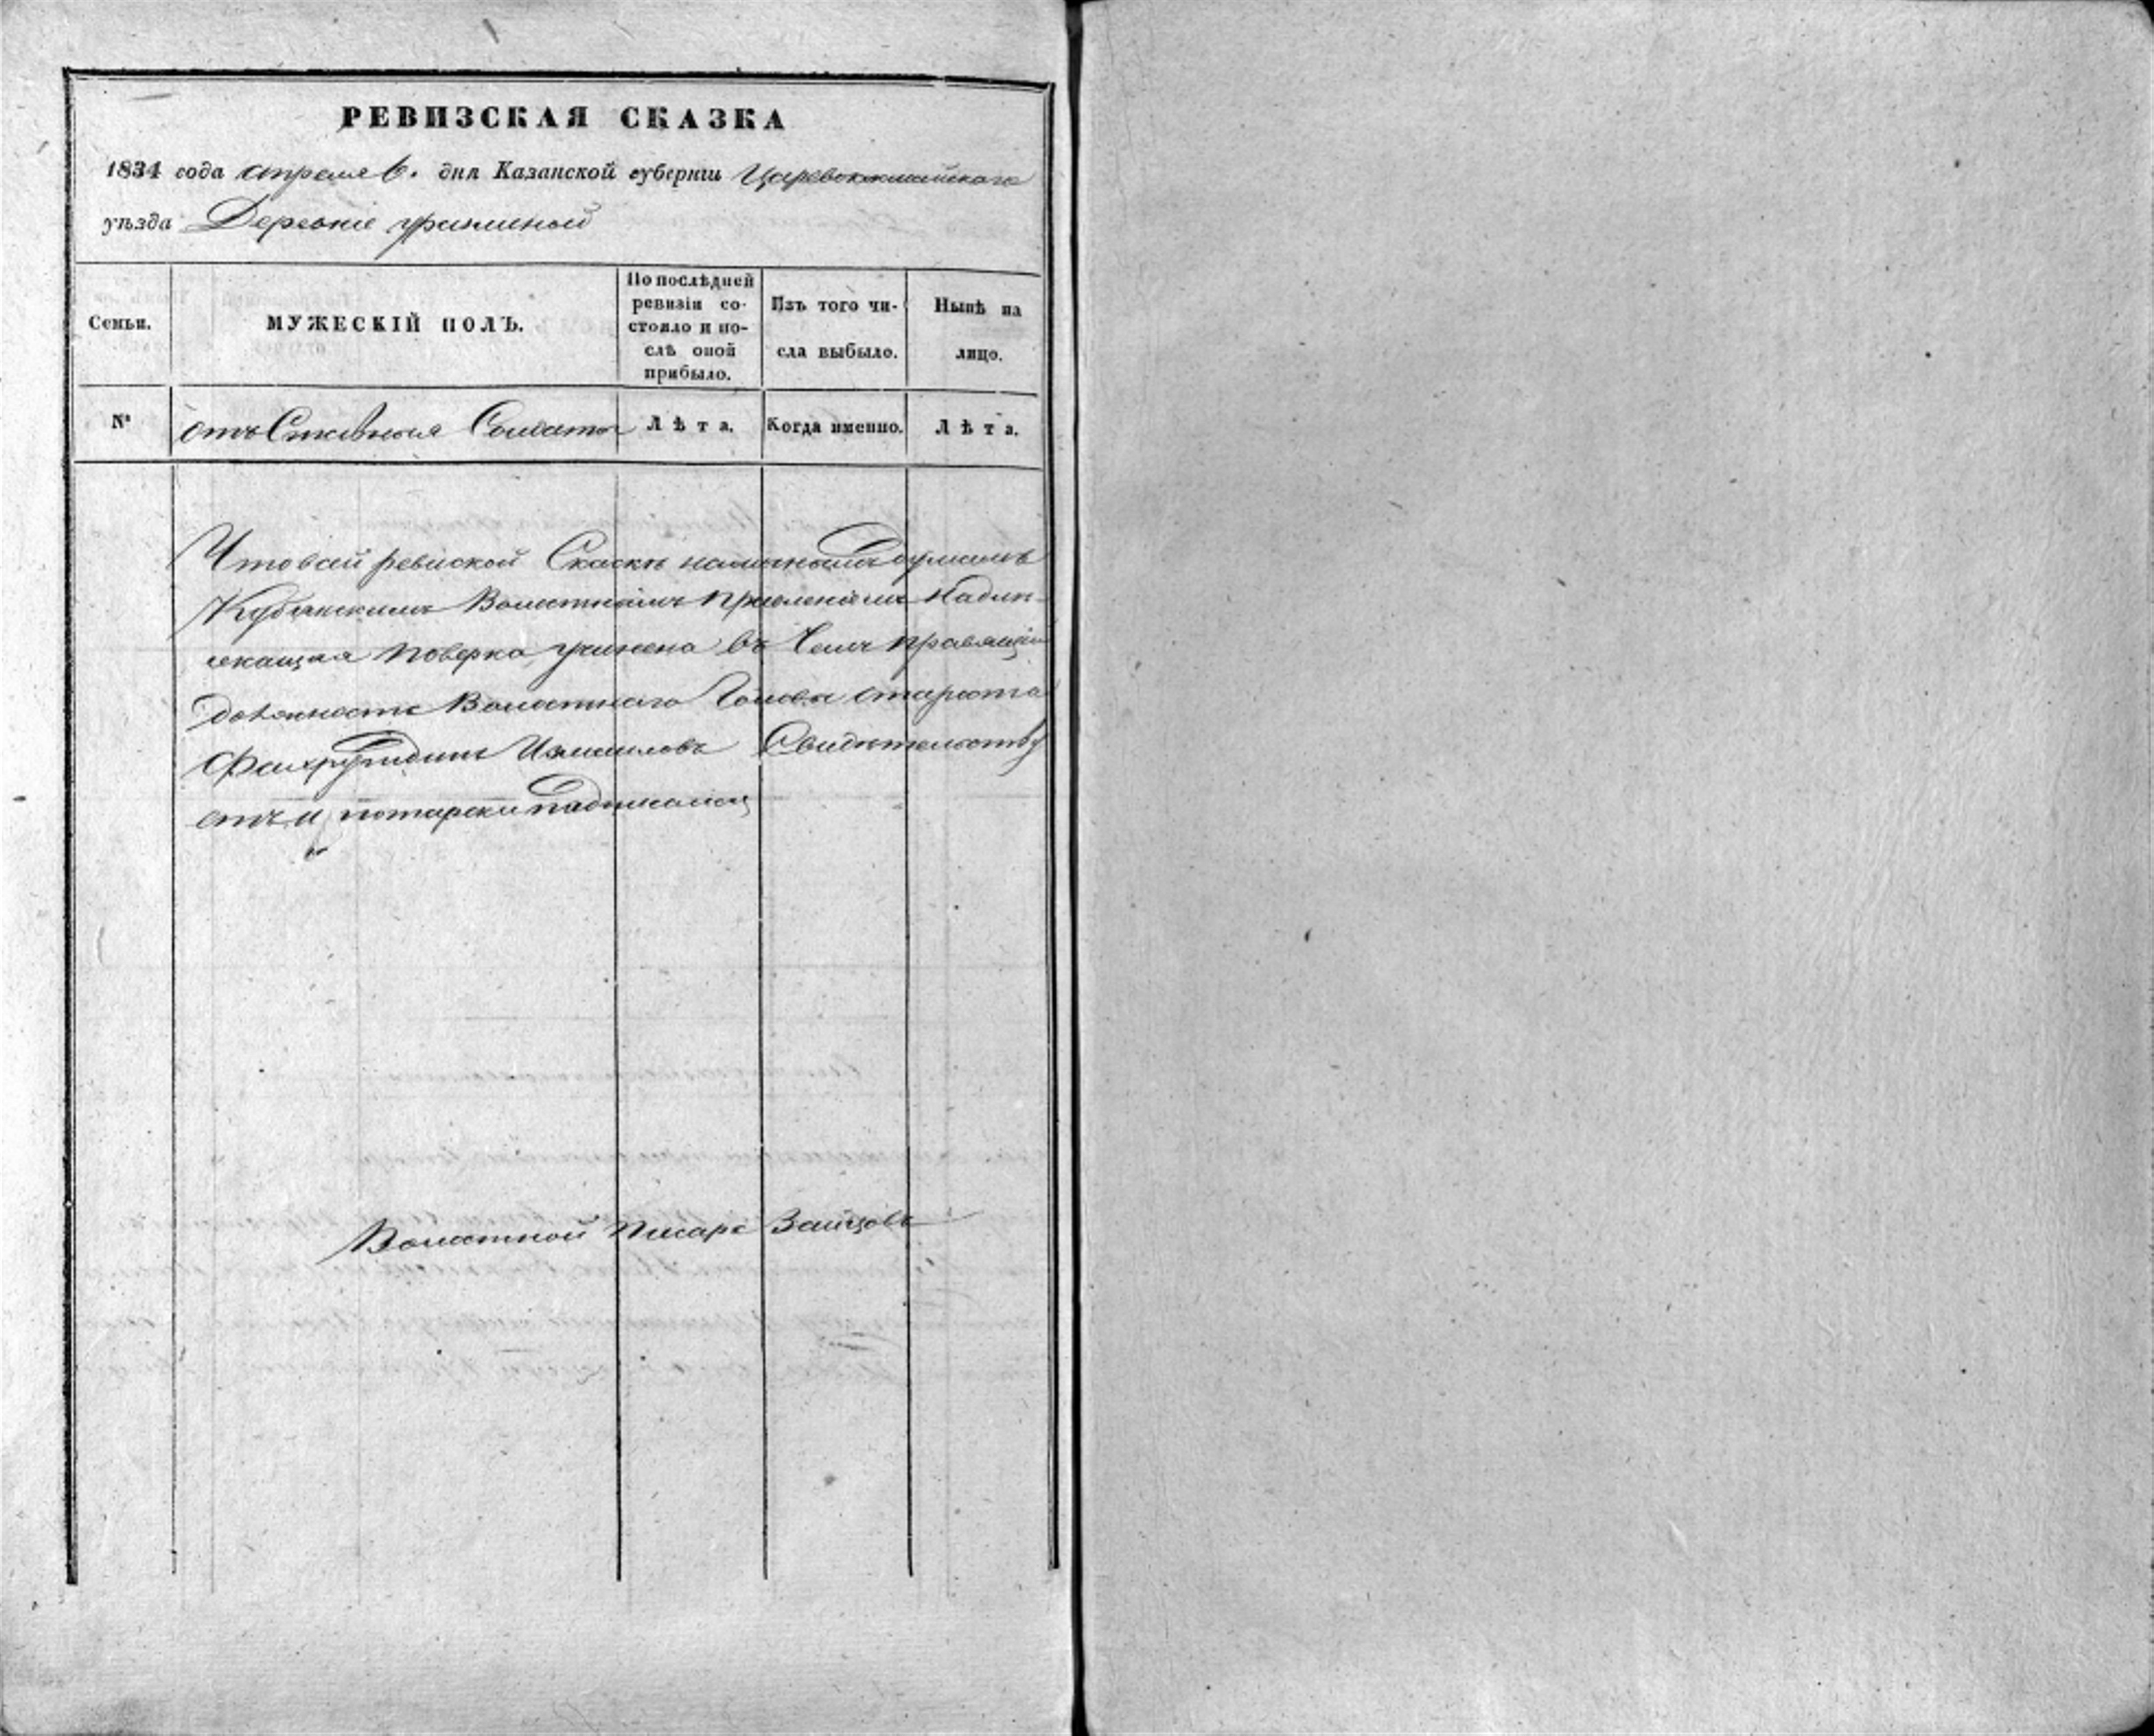 РЕВИЗСКАЯ СКАЗКА
1834 года апреля 6. дня Казанской губернiи Царевококшайскаго
уѣзда Деревнiе
Семьи.
МУЖЕСКIЙ ПОЛЪ.
По послѣдней
ревизiи со-
стояло и по-
слѣ оной
прибыло.
Изъ того чи-
сла выбыло.
Нынѣ на
лицо.
№
отъ Ставныя Солдаты
Лѣта.
Когда именно.
Лѣта.
Что всей ревиской Скаскѣ наличнымъ душамъ
Волостнымъ правленiемъ Надле-
жащая поверка учинена въ Чемъ правящiй
должность Волостнаго Головы староста
Фахрутдинъ Измаиловъ Свидѣтельству
етъ и потарски падписался
Волостной Писарь Зайцовъ